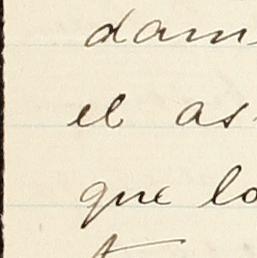 dam
el as
que lo